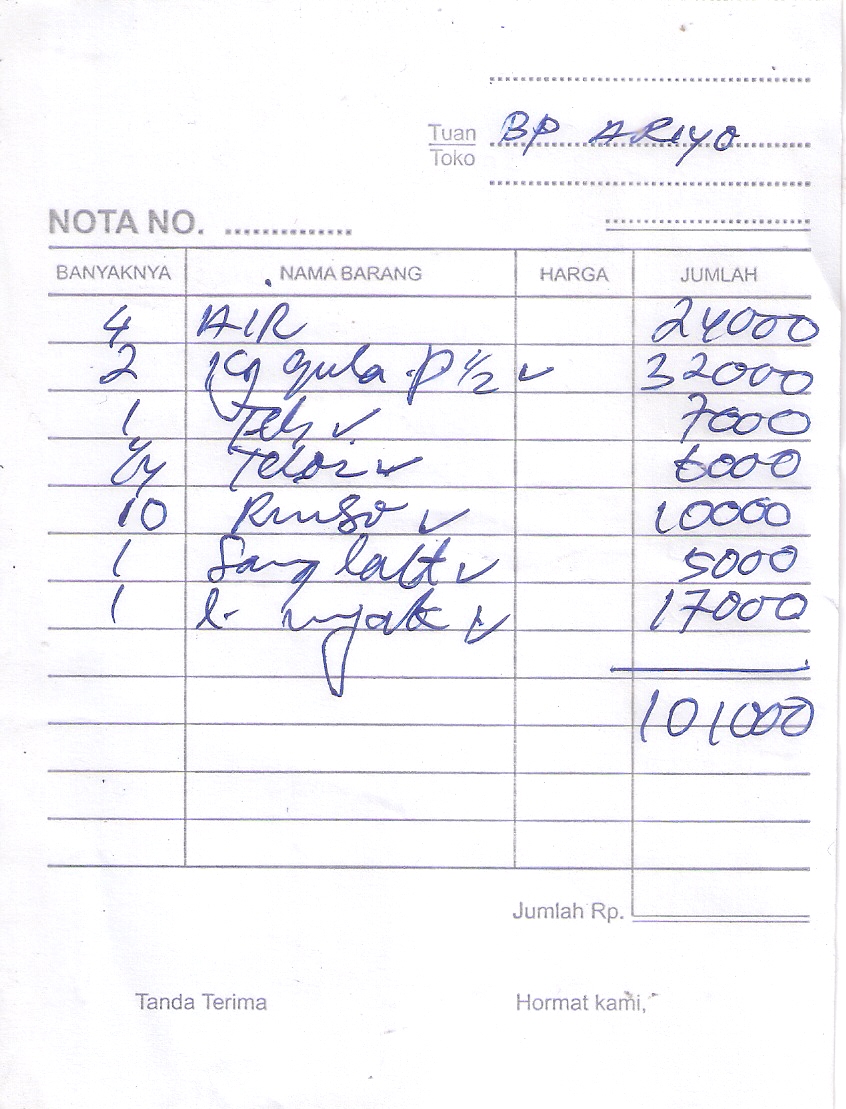 Tuan BP ARIYO
Toko
NOTA NO. ..............
BANYAKNYA NAMA BARANG HARGA JUMLAH
4 AIR 24000
2 Kg gula P 1/2 32000
1 Teh 7000
1/4 Telor 6000
10 Rinso 10000
1 5000
1 17000
101000
Jumlah Rp.
Tanda Terima Hormat kami,